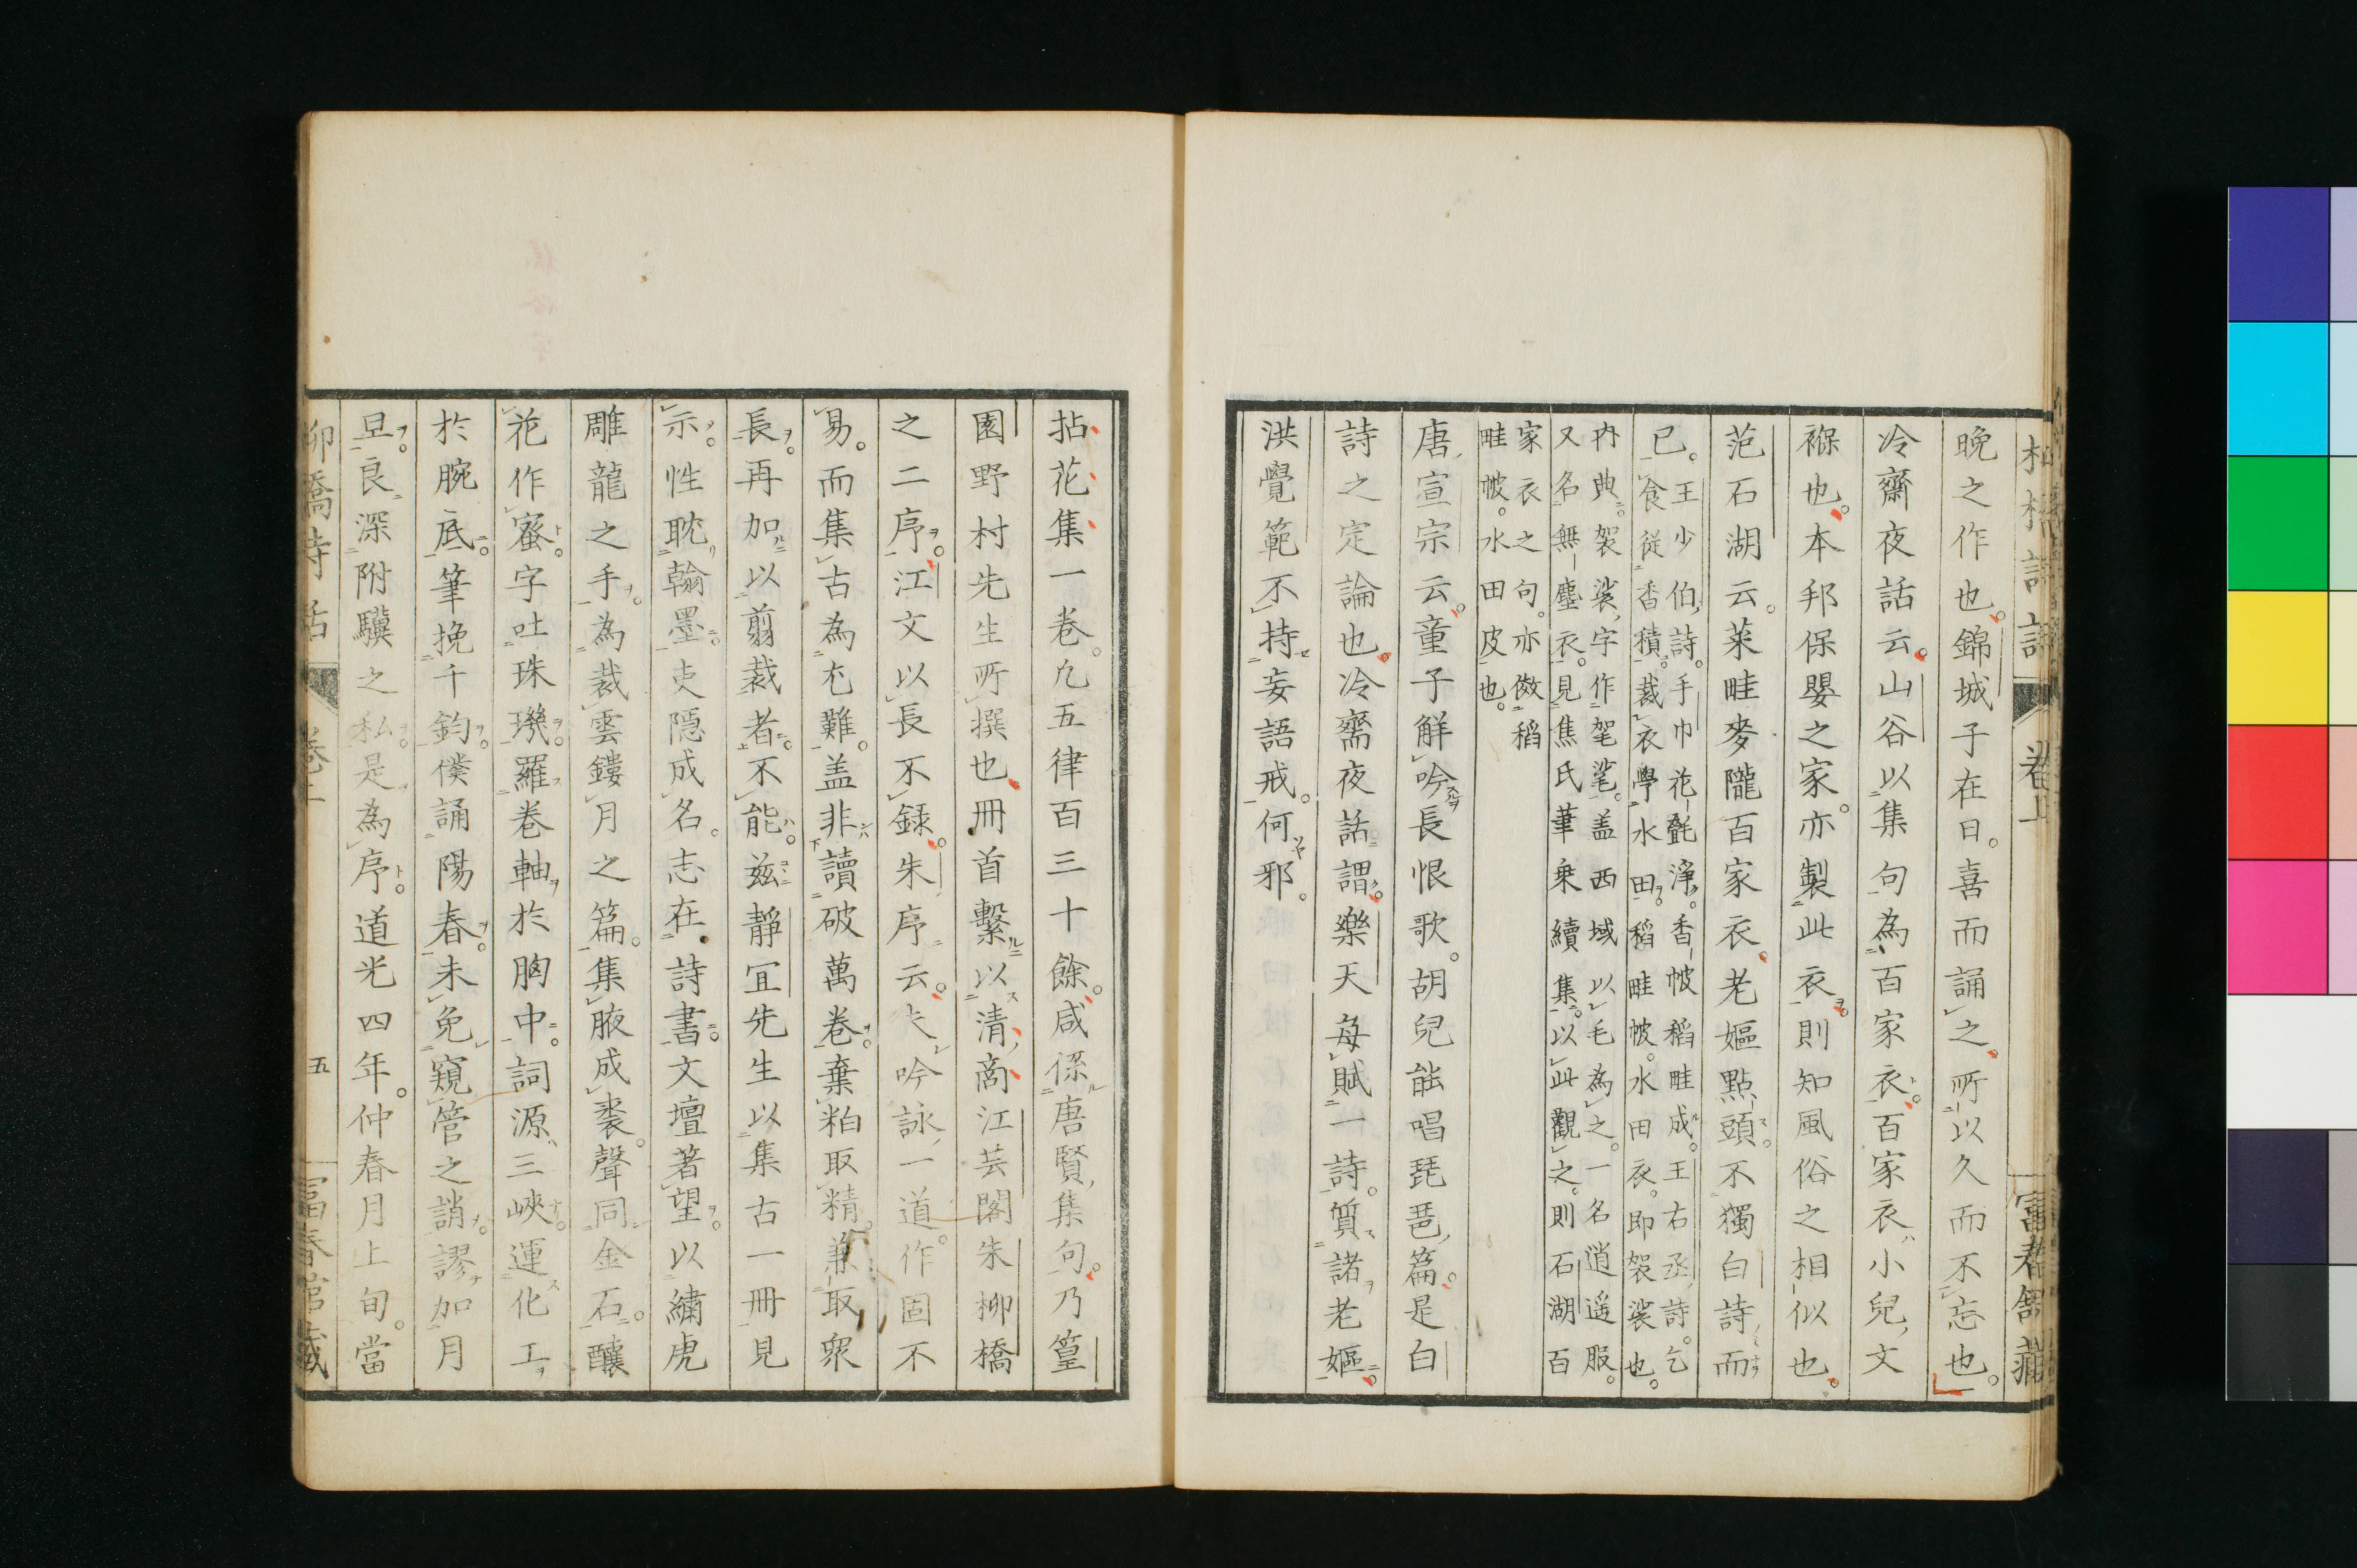 晩之作也。錦城子在日。喜而誦之。所以久而不忘也。
冷齋夜話云。山谷以集句為百家衣。百家衣小兒文
褓也。本邦保嬰之家。亦製此衣。則知風俗之相似也。
范石湖云。菜畦麥隴百家衣。老嫗點頭。不獨白詩而
已。王少伯詩。手巾花氎淨。香帔稻畦成。王右丞詩。乞
食從香積。裁衣學水田。稻畦帔。水田衣。即袈裟也。
内典。袈裟字作毠㲚。盖西域以毛為之。一名逍遥服。
又名無塵衣。見焦氏筆乗續集。以此觀之。則石湖百
家衣之句。亦倣稻
畦帔。水田皮也。
唐宣宗云。童子解吟長恨歌。胡兒能唱琵琶篇。是白
詩之定論也。冷齋夜話謂。樂天每賦一詩。質諸老嫗。
洪覺範不持妄語戒。何邪。
拈花集一卷。凡五律百三十餘。咸係唐賢集句。乃篁
園野村先生所撰也。冊首繫以清商江芸閣朱柳橋
之二序。江文以長不録。朱序云。夫吟詠一道。作固不
易。而集古為尤難。盖非讀破萬卷。棄粕取精。兼取衆
長。再加以翦裁者。不能。玆靜宜先生以集古一冊見
示。性耽翰墨。吏隱成名。志在詩書。文壇著望。以繡虎
雕龍之手。為裁雲鏤月之篇。集腋成裘。聲同金石。釀
花作蜜。字吐珠璣。羅卷軸於胸中。詞源三峽。運化工
於腕底。筆挽千鈞。僕誦陽春。未免窺管之誚。謬加月
旦。良深附驥之私。是為序。道光四年。仲春月上旬。當
柳橋詩話 卷上 五 冨春館藏